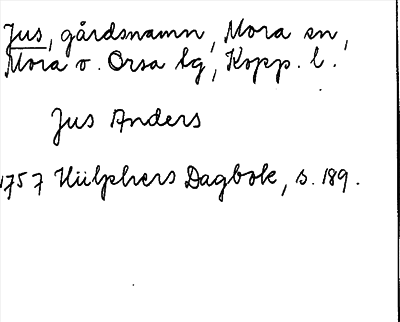 Jus, gårdsnamn, Mora sn,
Mora o. Orsa tg, Kopp. l.
Jus Anders
1757 Hülphers Dagbok, s. 189.